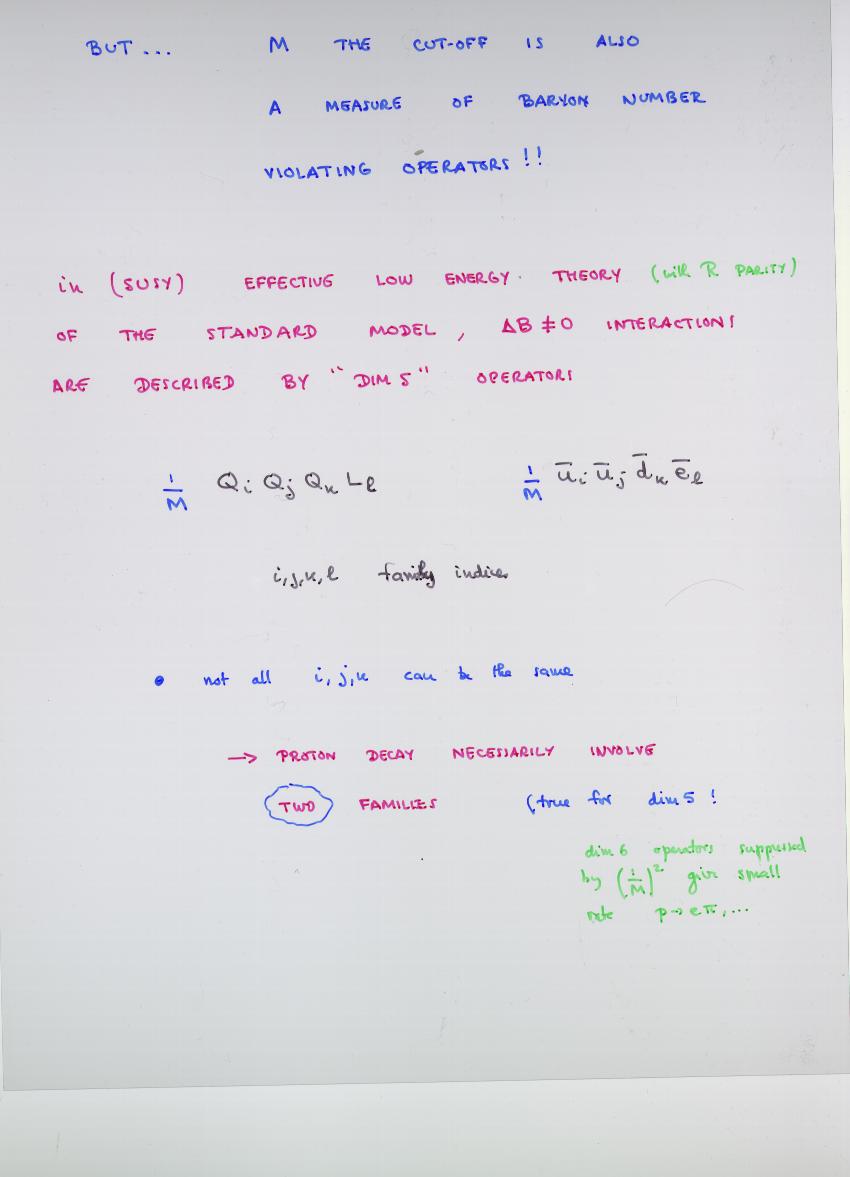 BUT ... M THE CUT-OFF IS ALSO
A MEASURE OF BARYON NUMBER
VIOLATING OPERATORS !!
in (SUSY) EFFECTIVE LOW ENERGY THEORY (with R PARITY)
OF THE STANDARD MODEL , ΔB ≠ 0 INTERACTIONS
ARE DESCRIBED BY "DIM 5" OPERATORS
1/M Q_i Q_j Q_k L_l 1/M ū_i ū_j d̄_k ē_l
i, j, k, l family indices
• not all i, j, k can be the same
→ PROTON DECAY NECESSARILY INVOLVE
TWO FAMILIES (true for dim 5 !
dim 6 operators suppressed
by (1/M)² give small
rate p → e π, ...